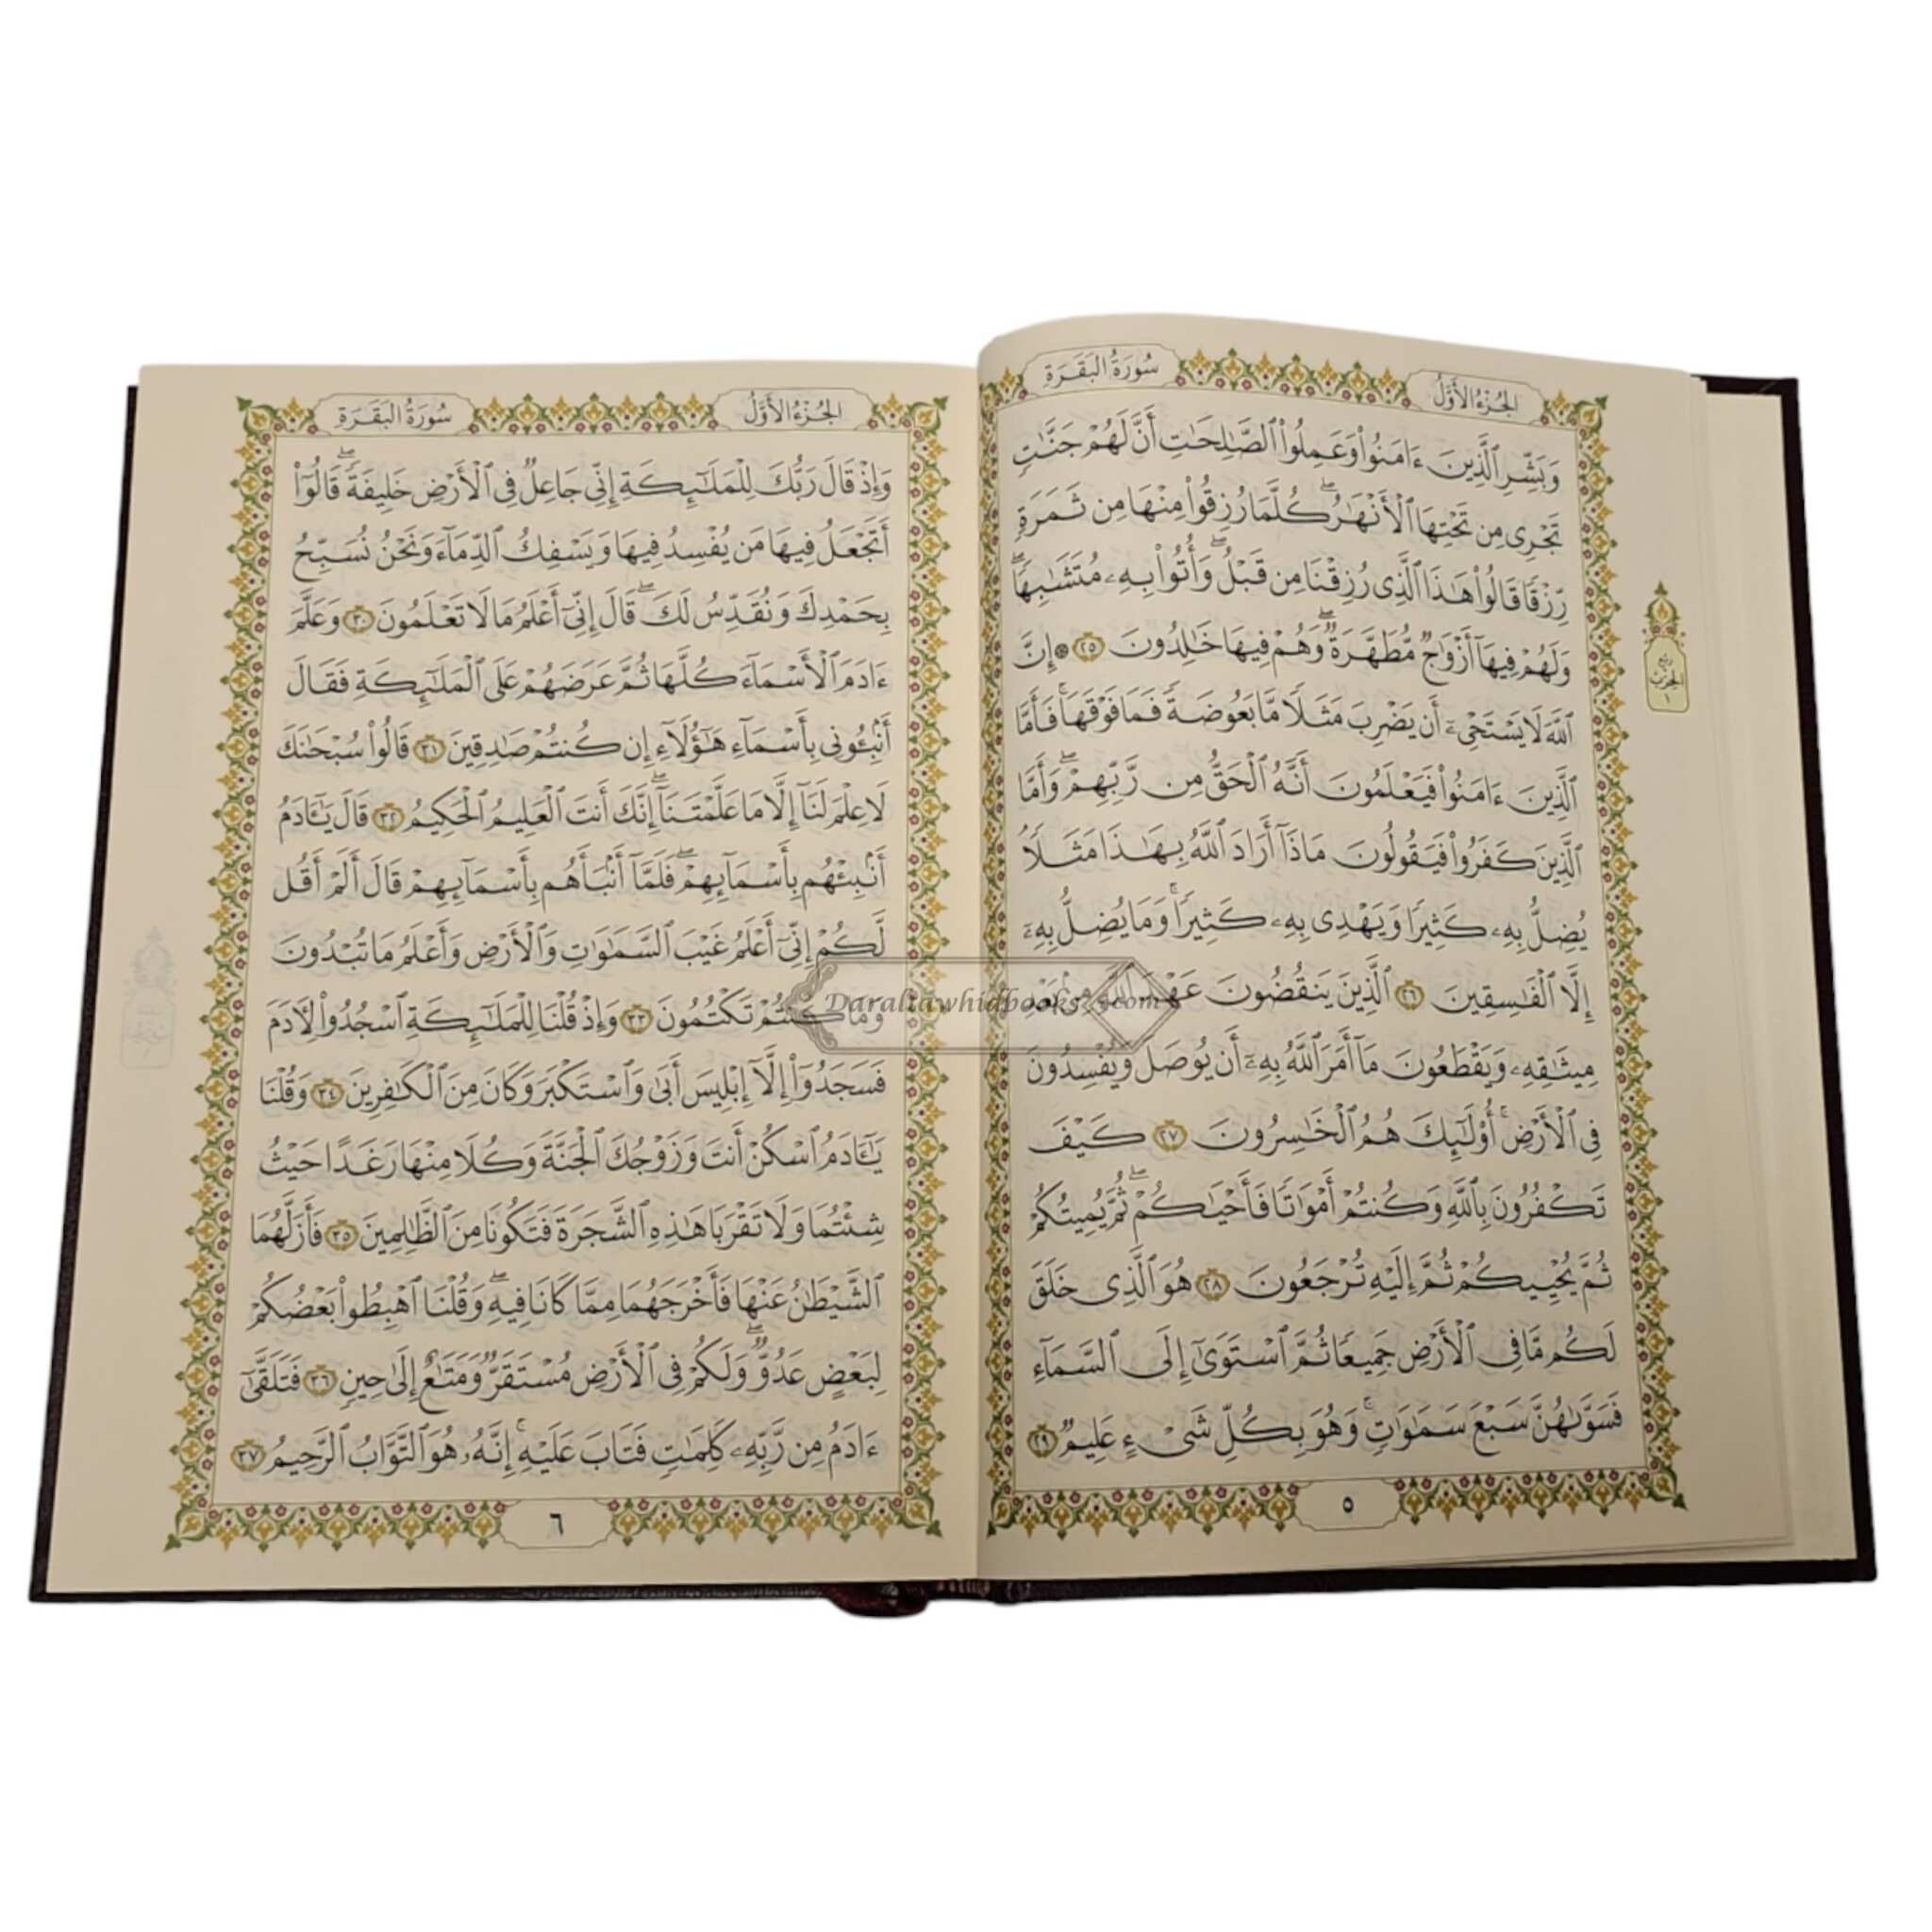 الجُزْءُ الأَوَّلُ
سُورَةُ البَقَرَةِ
وَبَشِّرِ ٱلَّذِينَ ءَامَنُوا۟ وَعَمِلُوا۟ ٱلصَّـٰلِحَـٰتِ أَنَّ لَهُمْ جَنَّـٰتٍ
تَجْرِى مِن تَحْتِهَا ٱلْأَنْهَـٰرُ ۖ كُلَّمَا رُزِقُوا۟ مِنْهَا مِن ثَمَرَةٍ
رِّزْقًا قَالُوا۟ هَـٰذَا ٱلَّذِى رُزِقْنَا مِن قَبْلُ ۖ وَأُتُوا۟ بِهِۦ مُتَشَـٰبِهًا ۖ
وَلَهُمْ فِيهَآ أَزْوَٰجٌ مُّطَهَّرَةٌ ۖ وَهُمْ فِيهَا خَـٰلِدُونَ ٢٥ ۞ إِنَّ
ٱللَّهَ لَا يَسْتَحْىِۦٓ أَن يَضْرِبَ مَثَلًا مَّا بَعُوضَةً فَمَا فَوْقَهَا ۚ فَأَمَّا
ٱلَّذِينَ ءَامَنُوا۟ فَيَعْلَمُونَ أَنَّهُ ٱلْحَقُّ مِن رَّبِّهِمْ ۖ وَأَمَّا
ٱلَّذِينَ كَفَرُوا۟ فَيَقُولُونَ مَاذَآ أَرَادَ ٱللَّهُ بِهَـٰذَا مَثَلًا ۘ
يُضِلُّ بِهِۦ كَثِيرًا وَيَهْدِى بِهِۦ كَثِيرًا ۚ وَمَا يُضِلُّ بِهِۦٓ
إِلَّا ٱلْفَـٰسِقِينَ ٢٦ ٱلَّذِينَ يَنقُضُونَ عَهْدَ ٱللَّهِ مِنۢ بَعْدِ
مِيثَـٰقِهِۦ وَيَقْطَعُونَ مَآ أَمَرَ ٱللَّهُ بِهِۦٓ أَن يُوصَلَ وَيُفْسِدُونَ
فِى ٱلْأَرْضِ ۚ أُو۟لَـٰٓئِكَ هُمُ ٱلْخَـٰسِرُونَ ٢٧ كَيْفَ
تَكْفُرُونَ بِٱللَّهِ وَكُنتُمْ أَمْوَٰتًا فَأَحْيَـٰكُمْ ۖ ثُمَّ يُمِيتُكُمْ
ثُمَّ يُحْيِيكُمْ ثُمَّ إِلَيْهِ تُرْجَعُونَ ٢٨ هُوَ ٱلَّذِى خَلَقَ
لَكُم مَّا فِى ٱلْأَرْضِ جَمِيعًا ثُمَّ ٱسْتَوَىٰٓ إِلَى ٱلسَّمَآءِ
فَسَوَّىٰهُنَّ سَبْعَ سَمَـٰوَٰتٍ ۚ وَهُوَ بِكُلِّ شَىْءٍ عَلِيمٌ ٢٩
٥
ربع
الحزب
١
الجُزْءُ الأَوَّلُ
سُورَةُ البَقَرَةِ
وَإِذْ قَالَ رَبُّكَ لِلْمَلَـٰٓئِكَةِ إِنِّى جَاعِلٌ فِى ٱلْأَرْضِ خَلِيفَةً ۖ قَالُوٓا۟
أَتَجْعَلُ فِيهَا مَن يُفْسِدُ فِيهَا وَيَسْفِكُ ٱلدِّمَآءَ وَنَحْنُ نُسَبِّحُ
بِحَمْدِكَ وَنُقَدِّسُ لَكَ ۖ قَالَ إِنِّىٓ أَعْلَمُ مَا لَا تَعْلَمُونَ ٣٠ وَعَلَّمَ
ءَادَمَ ٱلْأَسْمَآءَ كُلَّهَا ثُمَّ عَرَضَهُمْ عَلَى ٱلْمَلَـٰٓئِكَةِ فَقَالَ
أَنۢبِـُٔونِى بِأَسْمَآءِ هَـٰٓؤُلَآءِ إِن كُنتُمْ صَـٰدِقِينَ ٣١ قَالُوا۟ سُبْحَـٰنَكَ
لَا عِلْمَ لَنَآ إِلَّا مَا عَلَّمْتَنَآ ۖ إِنَّكَ أَنتَ ٱلْعَلِيمُ ٱلْحَكِيمُ ٣٢ قَالَ يَـٰٓـَٔادَمُ
أَنۢبِئْهُم بِأَسْمَآئِهِمْ ۖ فَلَمَّآ أَنۢبَأَهُم بِأَسْمَآئِهِمْ قَالَ أَلَمْ أَقُل
لَّكُمْ إِنِّىٓ أَعْلَمُ غَيْبَ ٱلسَّمَـٰوَٰتِ وَٱلْأَرْضِ وَأَعْلَمُ مَا تُبْدُونَ
وَمَا كُنتُمْ تَكْتُمُونَ ٣٣ وَإِذْ قُلْنَا لِلْمَلَـٰٓئِكَةِ ٱسْجُدُوا۟ لِـَٔادَمَ
فَسَجَدُوٓا۟ إِلَّآ إِبْلِيسَ أَبَىٰ وَٱسْتَكْبَرَ وَكَانَ مِنَ ٱلْكَـٰفِرِينَ ٣٤ وَقُلْنَا
يَـٰٓـَٔادَمُ ٱسْكُنْ أَنتَ وَزَوْجُكَ ٱلْجَنَّةَ وَكُلَا مِنْهَا رَغَدًا حَيْثُ
شِئْتُمَا وَلَا تَقْرَبَا هَـٰذِهِ ٱلشَّجَرَةَ فَتَكُونَا مِنَ ٱلظَّـٰلِمِينَ ٣٥ فَأَزَلَّهُمَا
ٱلشَّيْطَـٰنُ عَنْهَا فَأَخْرَجَهُمَا مِمَّا كَانَا فِيهِ ۖ وَقُلْنَا ٱهْبِطُوا۟ بَعْضُكُمْ
لِبَعْضٍ عَدُوٌّ ۖ وَلَكُمْ فِى ٱلْأَرْضِ مُسْتَقَرٌّ وَمَتَـٰعٌ إِلَىٰ حِينٍ ٣٦ فَتَلَقَّىٰٓ
ءَادَمُ مِن رَّبِّهِۦ كَلِمَـٰتٍ فَتَابَ عَلَيْهِ ۚ إِنَّهُۥ هُوَ ٱلتَّوَّابُ ٱلرَّحِيمُ ٣٧
٦